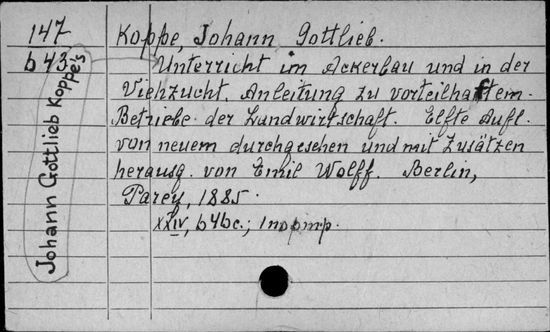 147
b43
Johann Gottlieb Koppe's
Koppe, Johann Gottlieb.
Unterricht im Ackerbau und in der
Viehzucht. Anleitung zu vorteilhaftem
Betriebe der Landwirtschaft. Elfte Aufl.
von neuem durchgesehen und mit Zusätzen
herausg. von Emil Wolff. Berlin,
Parey, 1885.
XXIV, 646c.; 1 портр.